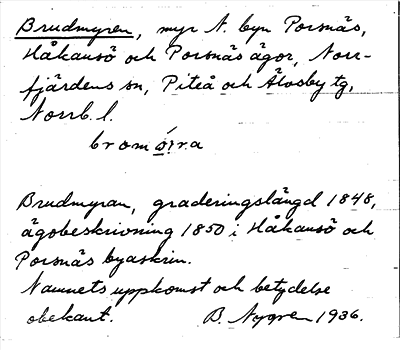 Brudmyren, myr N. byn Porsnäs,
Håkansö och Porsnäs ägor, Norr-
fjärdens sn, Piteå och Älvsby tg,
Norrb. l.
Brudmyran, graderingslängd 1848,
ägobeskrivning 1850 i Håkansö och
Porsnäs byaskrin.
Namnets uppkomst och betydelse
obekant. B. Nygren 1936.